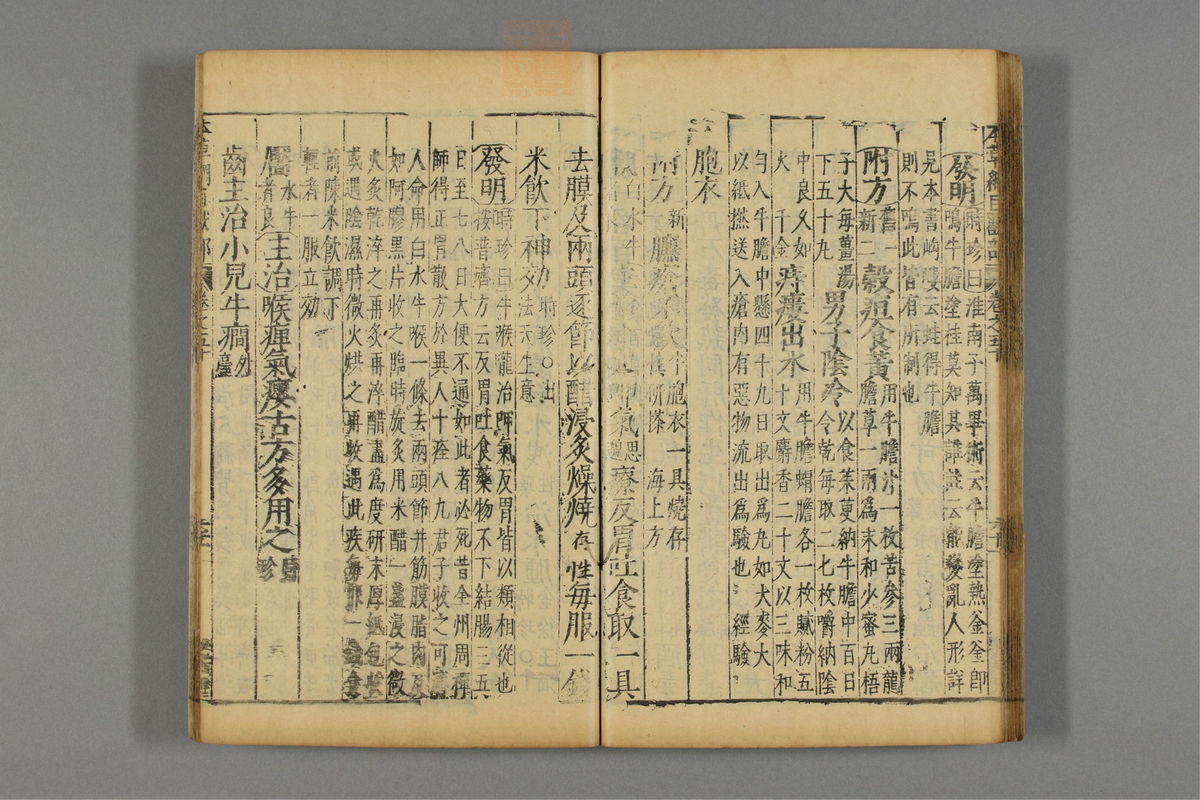 發明時珍曰淮南子萬畢術云牛膽塗熱釜釜即
鳴牛膽塗桂莫知其誰註云能變亂人形詳
見本書岣嶁云蛙得牛膽
則不鳴此皆有所制也
附方舊一新二
穀疸食黃用牛膽汁一枚苦參三兩龍
膽草一兩爲末和少蜜丸梧
子大每薑湯
下五十丸
男子陰冷以食茱萸納牛膽中百日
令乾每取二七枚嚼納陰
中良久如
火 千金
痔瘻出水用牛膽蝟膽各一枚膩粉五
十文麝香二十文以三味和
勻入牛膽中懸四十九日取出爲丸如大麥大
以紙撚送入瘡內有惡物流出爲驗也 經驗
胞衣
附方新
臁瘡
胞衣一具燒存
研搽 海上方
白水牛
氣
思邈
療反胃吐食取一具
去膜及兩頭逐節以醋浸炙燥燒存性每服一錢
米飲下神効時珍〇出法天生意
發明時珍曰牛喉嚨治呷氣反胃皆以類相從也
按普濟方云反胃吐食藥物不下結腸三五
日至七八日大便不通如此者必死昔全州周禪
師得正胃散方於異人十痊八九君子收之可
人命用白水牛喉一條去兩頭節并筋膜脂肉
如阿膠黑片收之臨時旋炙用米醋一盞浸之微
火炙乾淬之再炙再淬醋盡爲度研末厚紙包
或遇陰濕時微火烘之再收遇此疾每
前陳米飲調下
輕者一服立効
靨水牛者良
主治喉痺氣癭古方多用之時珍
齒主治小兒牛癇外臺